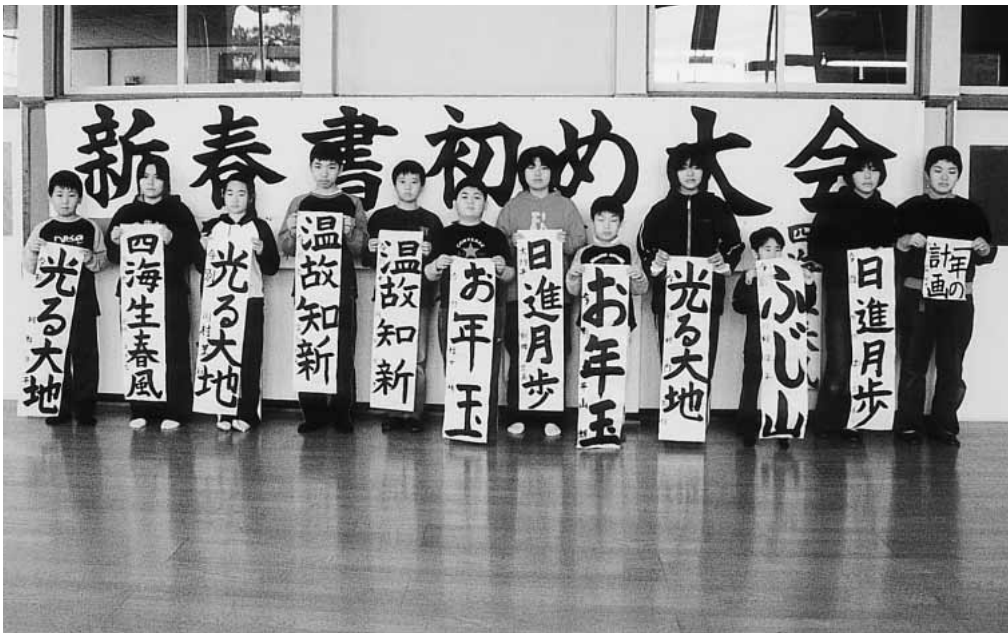 新春書初め大会
光る大地
四海生春風
光る大地
温故知新
温故知新
お年玉
日進月歩
お年玉
光る大地
ふじ山
四海
日進月歩
一年の
計画